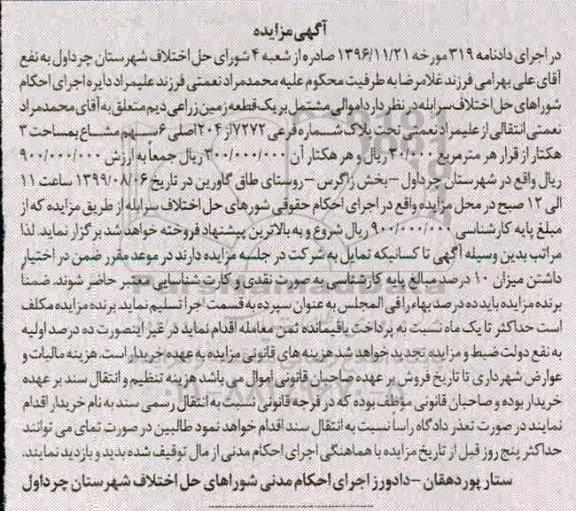 آگهی مزایده
در اجرای دادنامه ۳۱۹ مورخه ۱۳۹۶/۱۱/۲۱ صادره از شعبه ۴ شورای حل اختلاف شهرستان چرداول به نفع
آقای علی بهرامی فرزند غلامرضا به طرفیت محکوم علیه محمدمراد نعمتی فرزند علیمراد دایره اجرای احکام
شوراهای حل اختلاف سرابله در نظر دارد اموالی مشتمل بر یک قطعه زمین زراعی دیم متعلق به آقای محمدمراد
نعمتی انتقالی از علیمراد نعمتی تحت پلاک شماره فرعی ۷۲۷۲ از ۲۰۴ اصلی ۶ سهم مشاع بمساحت ۳
هکتار از قرار هر مترمربع ۳۰/۰۰۰ ریال و هر هکتار آن ۳۰۰/۰۰۰/۰۰۰ ریال جمعاً به ارزش ۹۰۰/۰۰۰/۰۰۰
ریال واقع در شهرستان چرداول – بخش زاگرس – روستای طاق گاورین در تاریخ ۱۳۹۹/۰۸/۰۶ ساعت ۱۱
الی ۱۲ صبح در محل مزایده واقع در اجرای احکام حقوقی شورهای حل اختلاف سرابله از طریق مزایده که از
مبلغ پایه کارشناسی ۹۰۰/۰۰۰/۰۰۰ ریال شروع و به بالاترین پیشنهاد فروخته خواهد شد برگزار نماید. لذا
مراتب بدین وسیله آگهی تا کسانیکه تمایل به شرکت در جلسه مزایده دارند در موعد مقرر ضمن در اختیار
داشتن میزان ۱۰ درصد مبالغ پایه کارشناسی به صورت نقدی و کارت شناسایی معتبر حاضر شوند. ضمناً
برنده مزایده باید ده درصد بهاء را فی المجلس به عنوان سپرده به قسمت اجرا تسلیم نماید. برنده مزایده مکلف
است حداکثر تا یک ماه نسبت به پرداخت باقیمانده ثمن معامله اقدام نماید در غیر اینصورت ده درصد اولیه
به نفع دولت ضبط و مزایده تجدید خواهد شد هزینه های قانونی مزایده به عهده خریدار است. هزینه مالیات و
عوارض شهرداری تا تاریخ فروش بر عهده صاحبان قانونی اموال می باشد هزینه تنظیم و انتقال سند بر عهده
خریدار بوده و صاحبان قانونی موظف بوده که در فرجه قانونی نسبت به انتقال رسمی سند به نام خریدار اقدام
نمایند در صورت تعذر دادگاه راسا نسبت به انتقال سند اقدام خواهد نمود طالبین در صورت تمای می توانند
حداکثر پنج روز قبل از تاریخ مزایده با هماهنگی اجرای احکام مدنی از مال توقیف شده بدید و بازدید نمایند.
ستار پور دهقان – دادورز اجرای احکام مدنی شوراهای حل اختلاف شهرستان چرداول